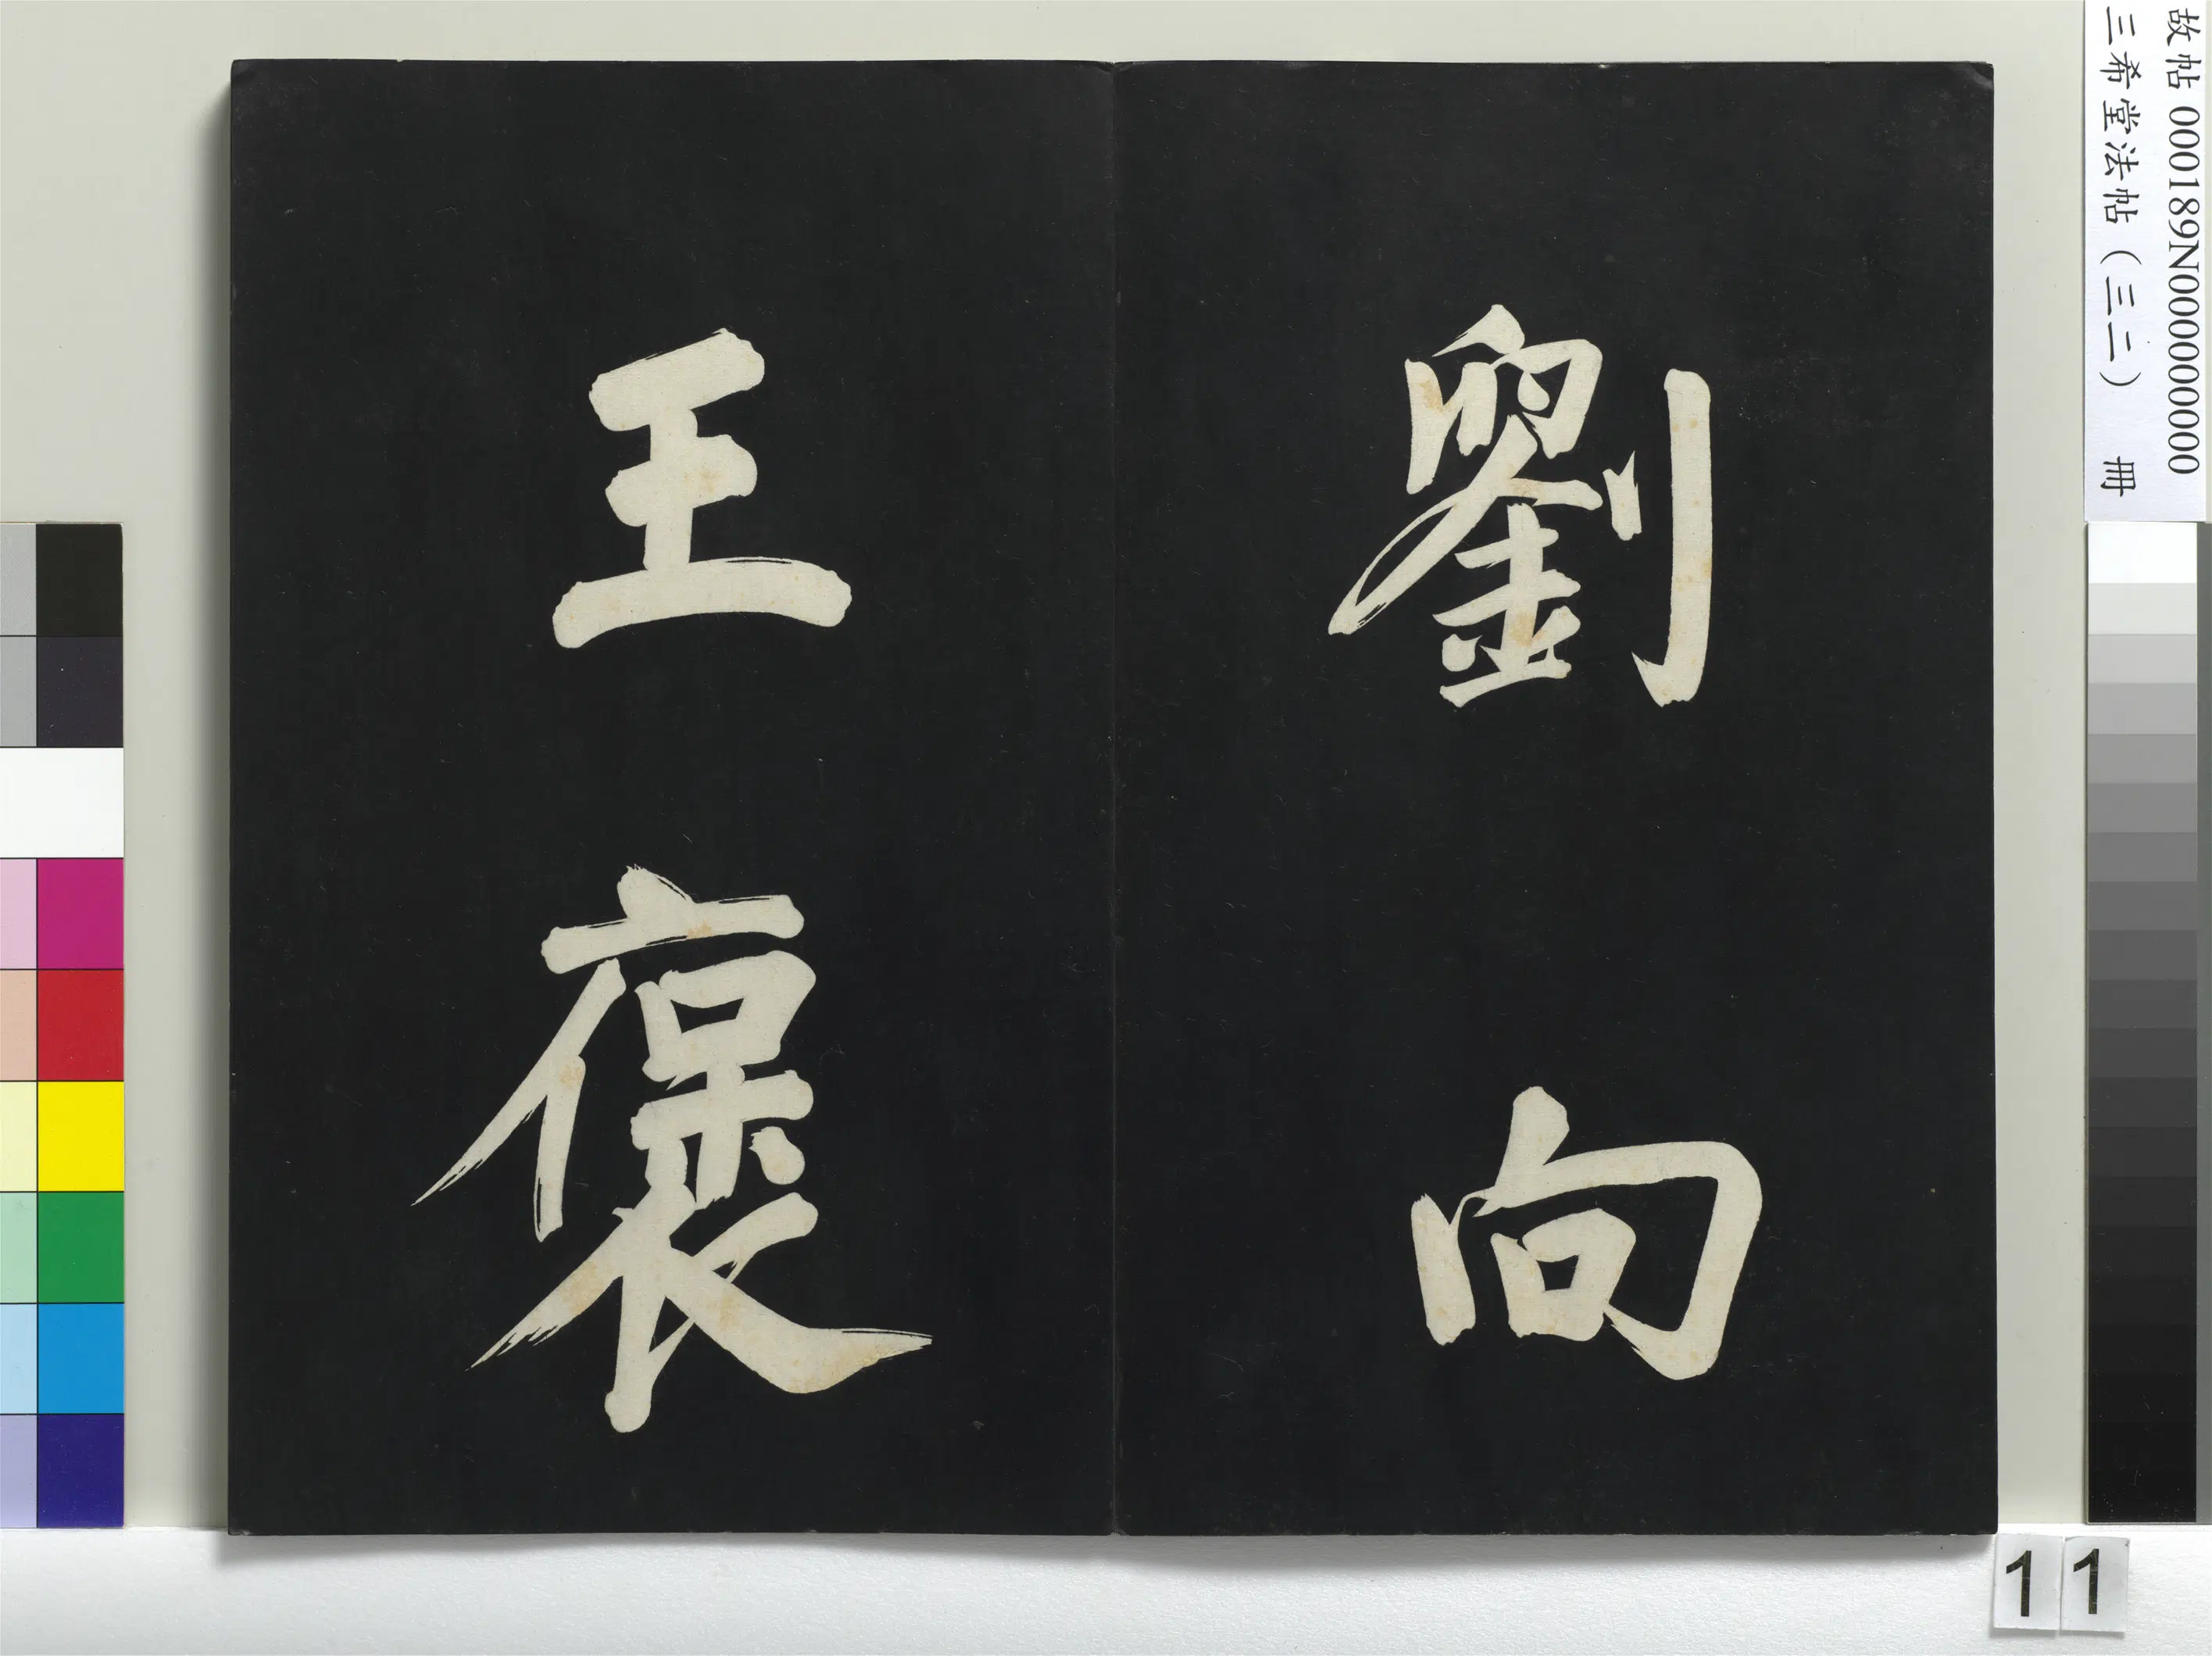 劉向
王褒
故帖 000189N000000000
三希堂法帖（三二） 冊
11